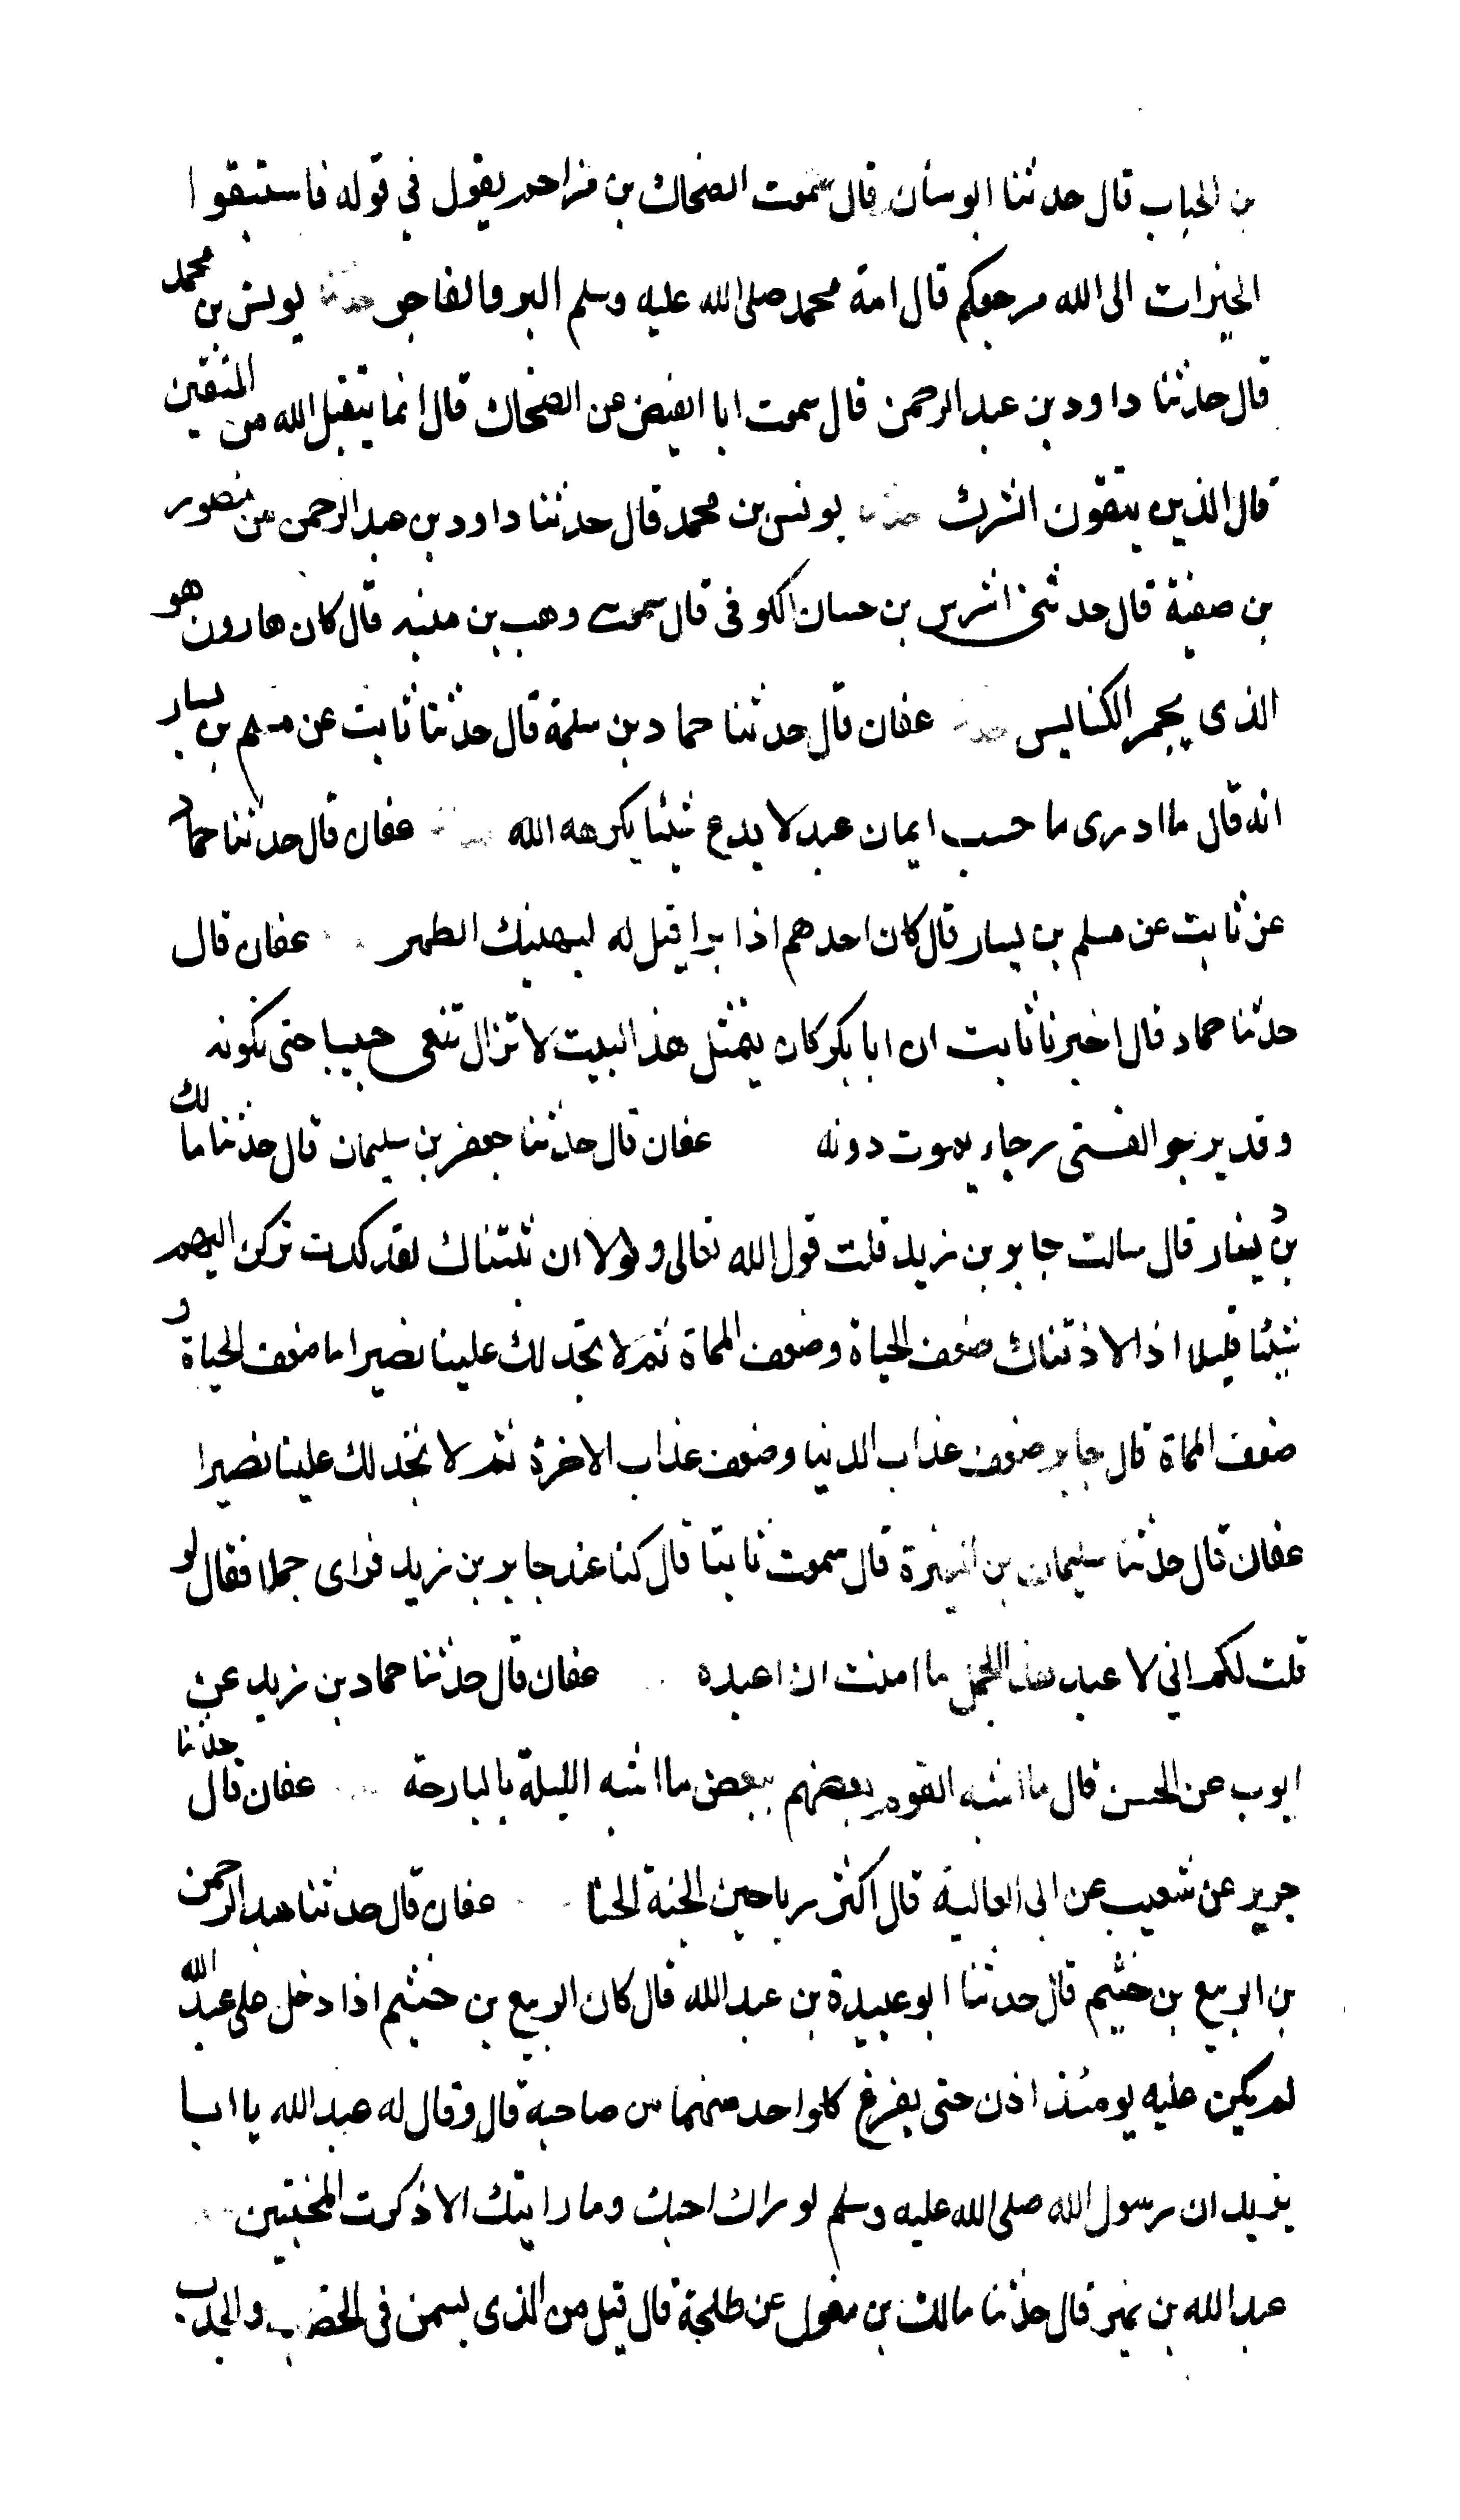 بن الحباب قال حدثنا ابو سنان قال سمعت الضحاك بن مزاحم يقول في قوله فاستبقوا
الخيرات الى الله مرجعكم قال امة محمد صلى الله عليه وسلم البر والفاجر حدثنا يونس بن محمد
قال حدثنا داود بن عبد الرحمن قال سمعت ابا الفيض عن الضحاك قال انما يتقبل الله من المتقين
قال الذين يتقون الشرك حدثنا يونس بن محمد قال حدثنا داود بن عبد الرحمن عن منصور
بن صفية قال حدثني اشرس بن حسان الكوفى قال سمعت وهب بن منبه قال كان هارون هو
الذى يجمر الكنايس حدثنا عفان قال حدثنا حماد بن سلمة قال حدثنا ثابت عن مسلم بن يسار
انه قال ما ادرى ما حسب ايمان عبد لا يدع شيئا يكرهه الله عفان قال حدثنا حماد
عن ثابت عن مسلم بن يسار قال كان احدهم اذا برا قيل له ليهنيك الطهر عفان قال
حدثنا حماد قال اخبرنا ثابت ان ابا بكر كان يتمثل هذا البيت لا تزال تنعى حبيبا حتى تكونه
وقد يرجو الفتى رجاء يموت دونه عفان قال حدثنا جعفر بن سليمان قال حدثنا مالك
بن دينار قال سالت جابر بن زيد قلت قول الله تعالى ولولا ان ثبتناك لقد كدت تركن اليهم
شيئا قليلا اذا لاذقناك ضعف الحياة وضعف المماة ثم لا تجد لك علينا نصيرا ما ضعف الحياة و
ضعف المماة قال جابر ضعف عذاب الدنيا وضعف عذاب الاخرة ثم لا تجد لك علينا نصيرا
عفان قال حدثنا سليمان بن المغيرة قال سمعت ثابتا قال كنا عند جابر بن زيد فراى جملا فقال لو
قلت لكم اني لا عبد هذا الجمل ما امنت ان اعبده عفان قال حدثنا حماد بن زيد عن
ايوب عن الحسن قال ما اشبه القوم بعضهم ببعض ما اشبه الليلة بالبارحة عفان قال حدثنا
جرير عن شعيب عن ابى العالية قال اكثر رياحين الجنة الحنا عفان قال حدثنا عبد الرحمن
بن الربيع بن خثيم قال حدثنا ابو عبيدة بن عبد الله قال كان الربيع بن خثيم اذا دخل على عبد الله
لم يكن عليه يومئذ اذن حتى يفرغ كل واحد منهما من صاحبه قال وقال له عبد الله يا ابا
يزيد ان رسول الله صلى الله عليه وسلم لو راك احبك وما رايتك الا ذكرت المخبتين
عبد الله بن نمير قال حدثنا مالك بن مغول عن طلحة قال قيل من الذى يسمن فى الخصب والجدب